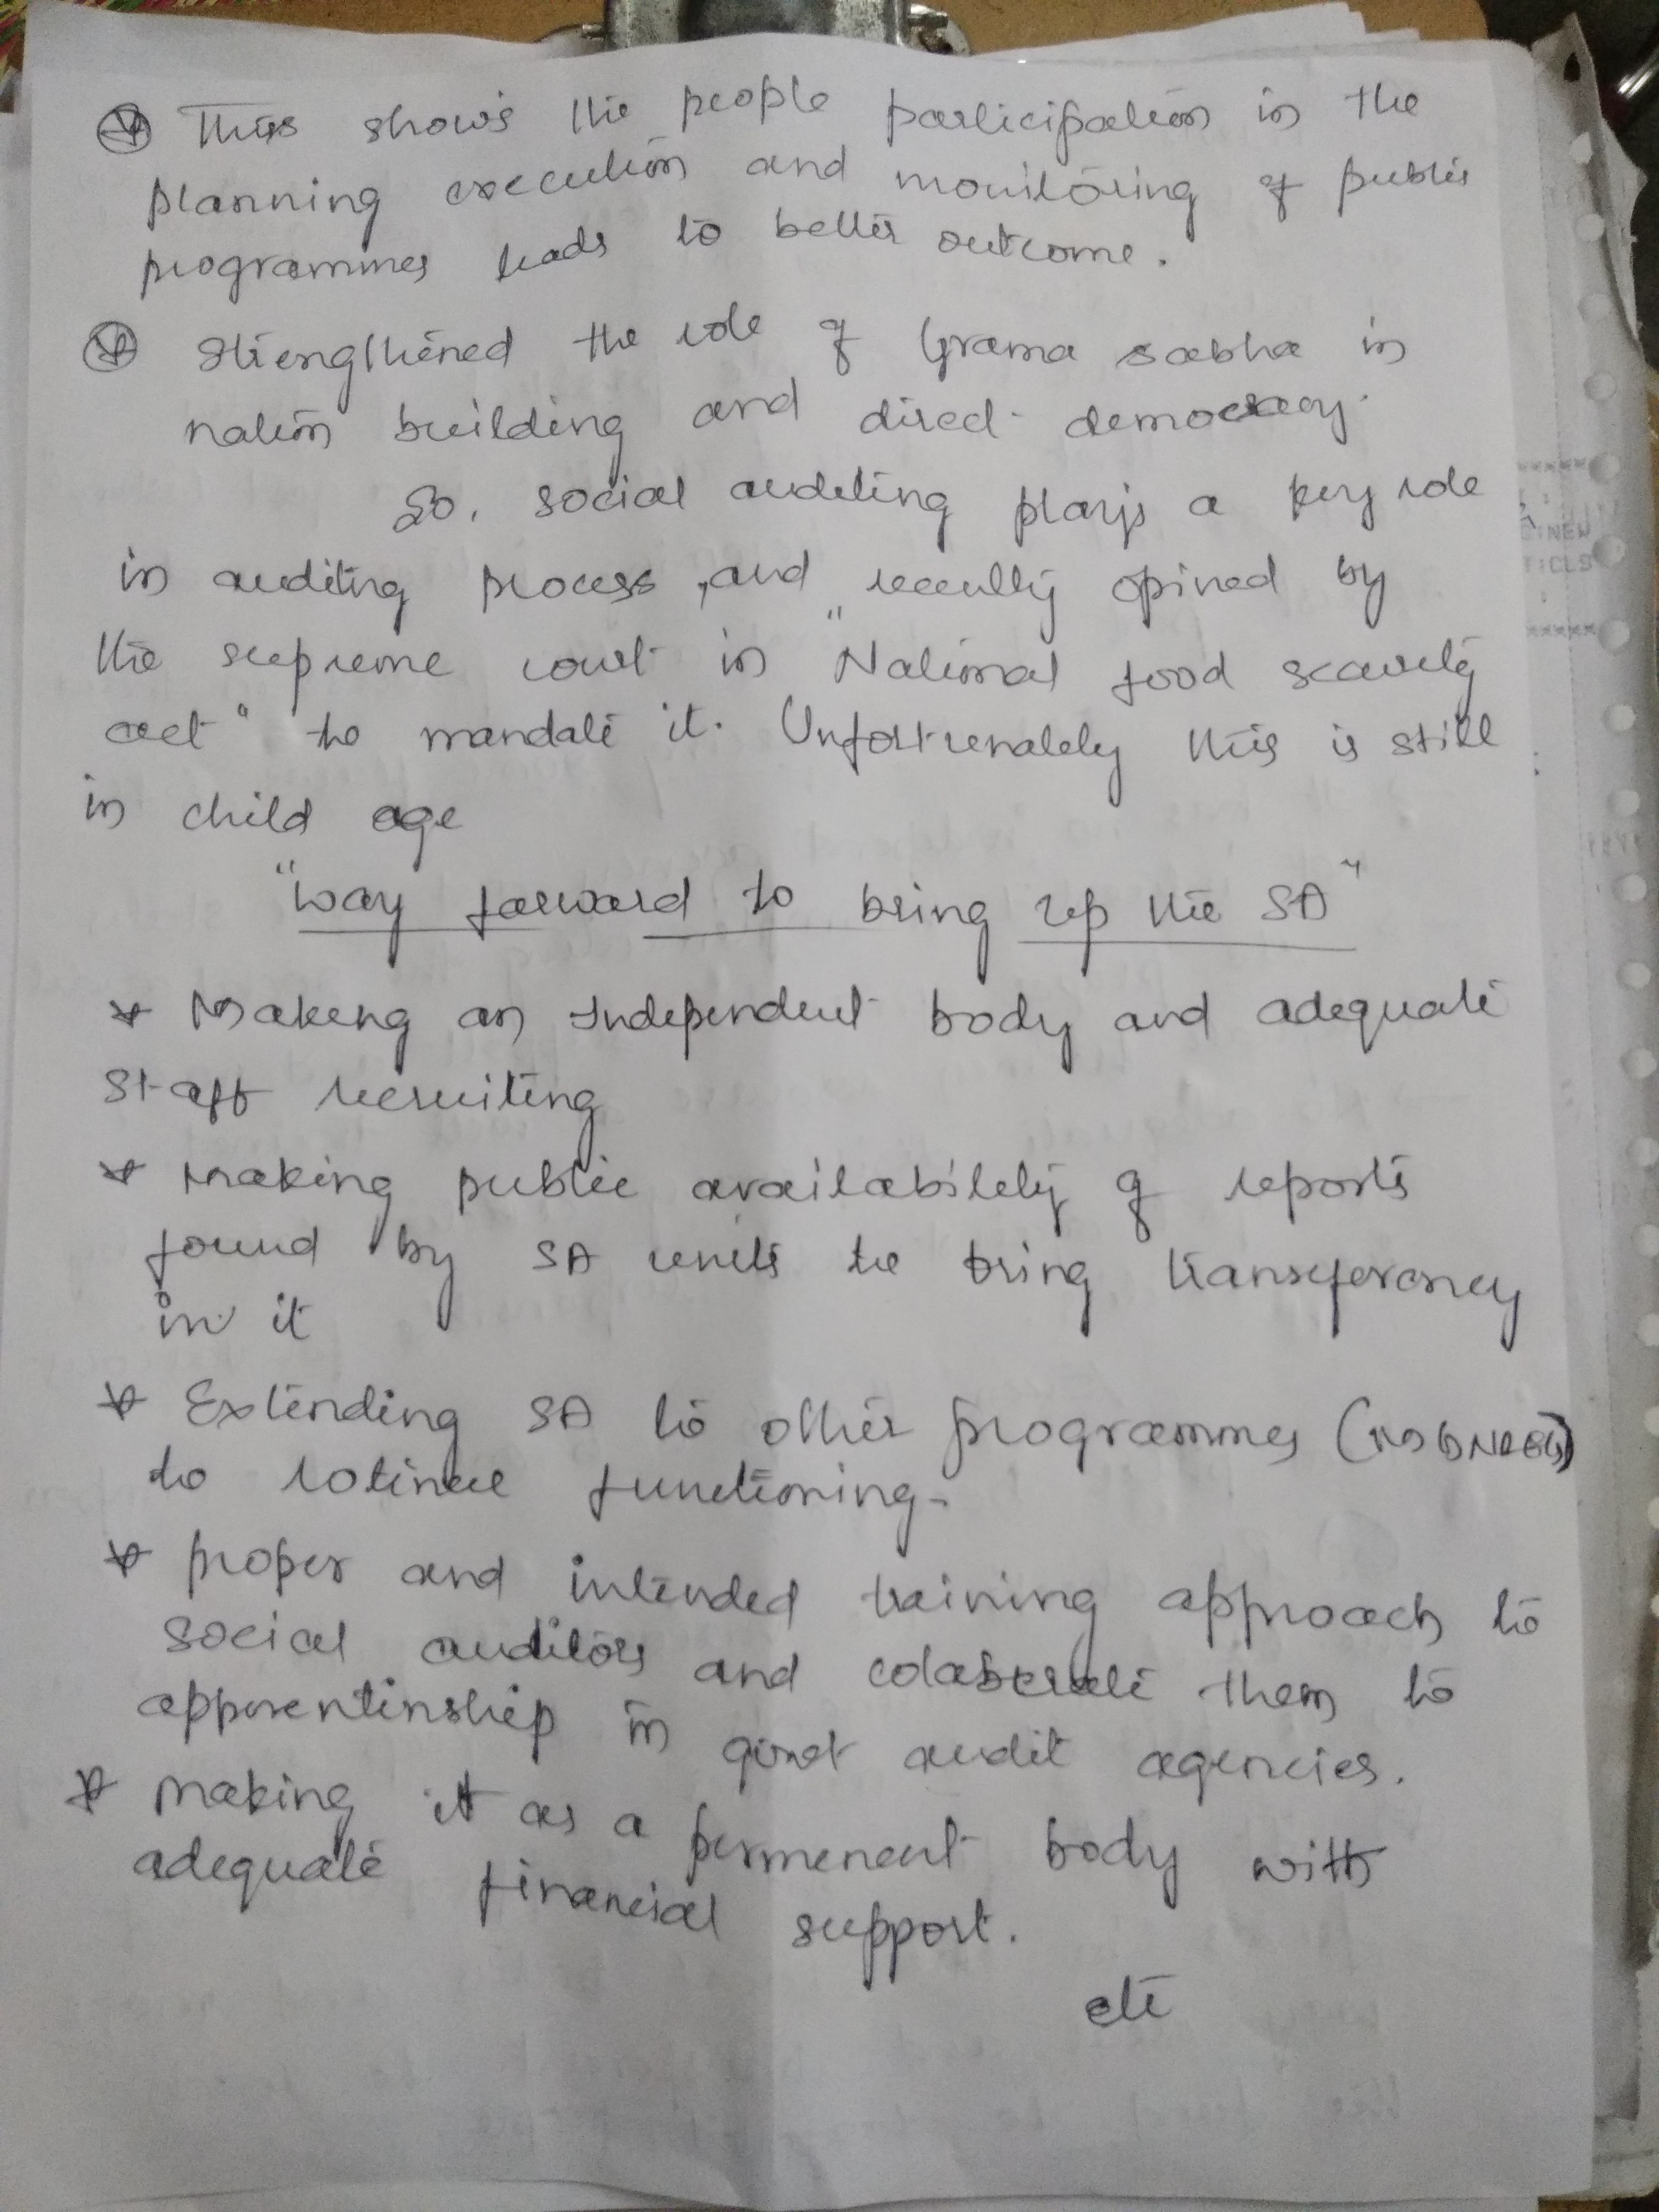 This shows the people participation in the
planning execution and monitoring of public
programmes leads to better outcome.
Strengthened the role of Grama sabha in
nation building and direct democracy.
So, social auditing plays a key role
in auditing process, and recently opined by
the supreme court in "National food security
act" to mandate it. Unfortunately this is still
in child age
"Way forward to bring up the SA"
* Making an Independent body and adequate
staff recruiting
* Making public availability of reports
found by SA units to bring transferency
in it
* Extending SA to other programmes
to rotinue functioning.
* proper and intended training approach to
social auditors and colaberate them to
apprentinship in govt audit agencies.
* Making it as a permenent body with
adequate financial support.
etc